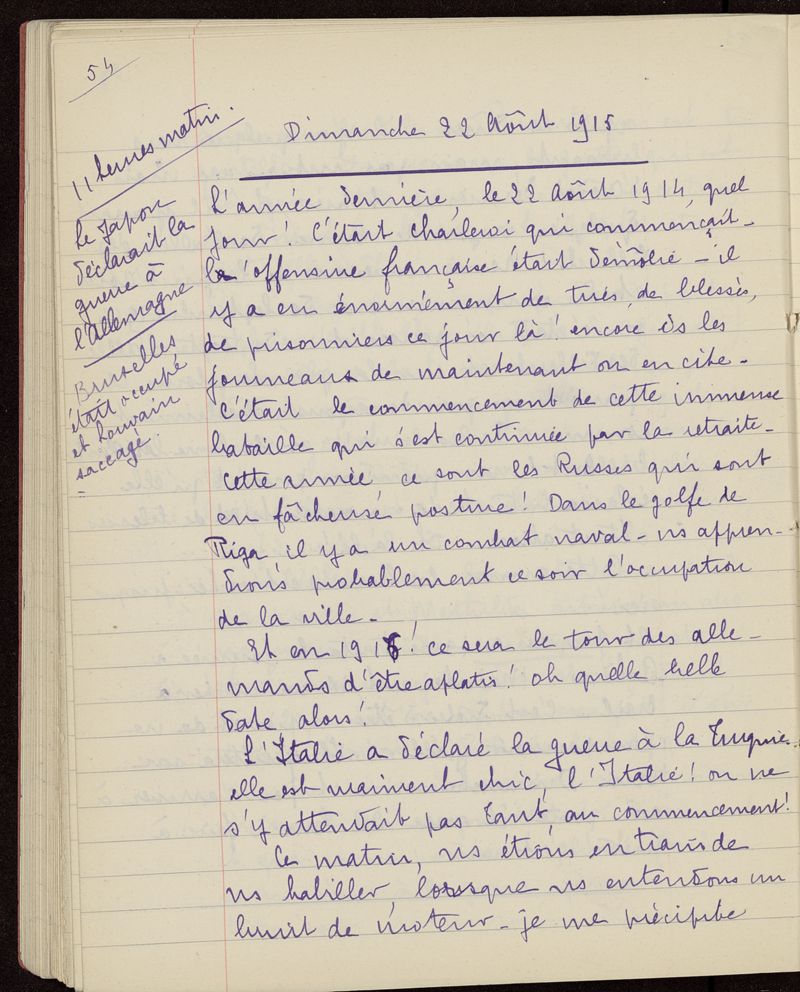 54
11 heures matin.
Le Japon
déclarait la
guerre à
l'Allemagne
Bruxelles
était occupé
et Louvain
saccagé.
Dimanche 22 Août 1915
L'année dernière, le 22 Août 1914, quel
jour! C'était Charleroi qui commençait -
l'offensive française était démolie - il
y a eu énormément de tués, de blessés,
de prisonniers ce jour là! encore ds les
journeaux de maintenant on en cite -
C'était le commencement de cette immense
bataille qui s'est continuée par la retraite -
Cette année ce sont les Russes qui sont
en fâcheuse posture! Dans le golfe de
Riga il y a un combat naval - ns appren-
drons probablement ce soir l'occupation
de la ville -
Et en 1916! ce sera le tour des alle-
mands d'être aplatis! oh quelle belle
date alors!
L'Italie a déclaré la guerre à la Turquie -
elle est vraiment chic, l'Italie! on ne
s'y attendait pas tant au commencement!
Ce matin, ns étions en train de
ns habiller, lorsque ns entendons un
bruit de moteur - je me précipite